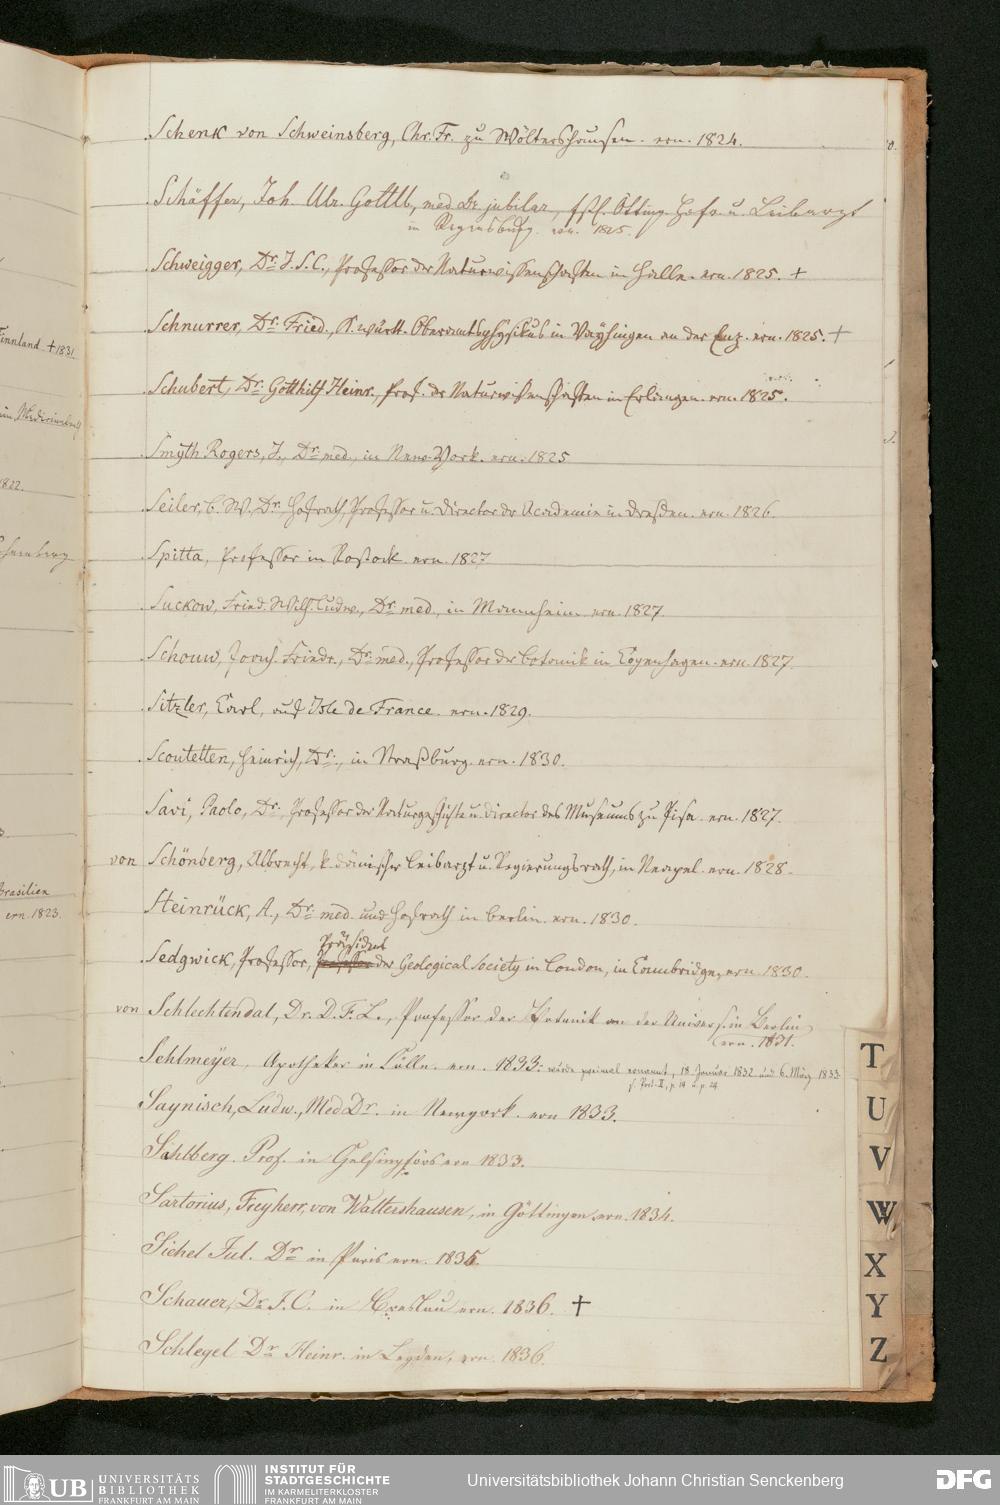 Schenk von Schweinsberg, Chr. Fr. zu Wöltershausen. ern. 1824.
Schäffer, Joh. Ulr. Gottlb, med. Dr. jubilar, fstl. Ötting. Hofr. u. Leibarzt
in Regensburg. ern. 1825.
Schweigger, Dr. J. S. C., Professor der Naturwissenschaften in Halle. ern. 1825. +
Schnurrer, Dr. Fried., K. württ. Oberamtsphysikus in Vayhingen an der Enz. ern. 1825. +
Schubert, Dr. Gotthilf Heinr., Prof. dr Naturwissenschaften in Erlangen. ern. 1825.
Smyth Rogers, J., Dr. med., in New-York. ern. 1825
Seiler, B. W., Dr. Hofrath, Professor u. Director der Academie in Dresden. ern. 1826.
Spitta, Professor in Rostock. ern. 1827
Suckow, Fried. Wilh. Ludw., Dr. med., in Mannheim. ern. 1827.
Schouw, Joach. Friedr., Dr. med., Professor der Botanik in Copenhagen. ern. 1827.
Sitzler, Carl, auf Isle de France. ern. 1829.
Scoutetten, Heinrich, Dr., in Straßburg. ern. 1830.
Savi, Paolo, Dr., Professor der Naturgeschichte u. Director des Museums zu Pisa. ern. 1827.
von Schönberg, Albrecht, k. dänischer Leibarzt u. Regierungsrath, in Neapel. ern. 1828.
Steinrück, A., Dr. med. und Hofrath in Berlin. ern. 1830.
Präsident
Sedgwick, Professor, Professor der Geological Society in London, in Cambridge, ern. 1830.
von Schlechtendal, Dr. D. F. L., Professor der Botanik an der Univers. in Berlin
ern. 1831.
Sehlmeyer, Apotheker in Cölln. ern. 1833: wurde zweimal ernannt, 18. Januar 1832 und 6. März 1833.
s. Prot. II, p. 14 u. p. 24
Saynisch, Ludw., Med Dr. in Newyork. ern 1833.
Sahlberg. Prof. in Helsingförs ern 1833.
Sartorius, Freyherr, von Waltershausen, in Göttingen. ern. 1834.
Sichel Jul. Dr. in Paris ern. 1835.
Schauer, Dr. J. C. in Breslau ern. 1836. +
Schlegel Dr. Heinr. in Leyden, ern. 1836.
Finnland + 1831.
1822.
Brasilien
ern. 1823.
T
U
V
W
X
Y
Z
UB UNIVERSITÄTS
BIBLIOTHEK
FRANKFURT AM MAIN
INSTITUT FÜR
STADTGESCHICHTE
IM KARMELITERKLOSTER
FRANKFURT AM MAIN
Universitätsbibliothek Johann Christian Senckenberg
DFG